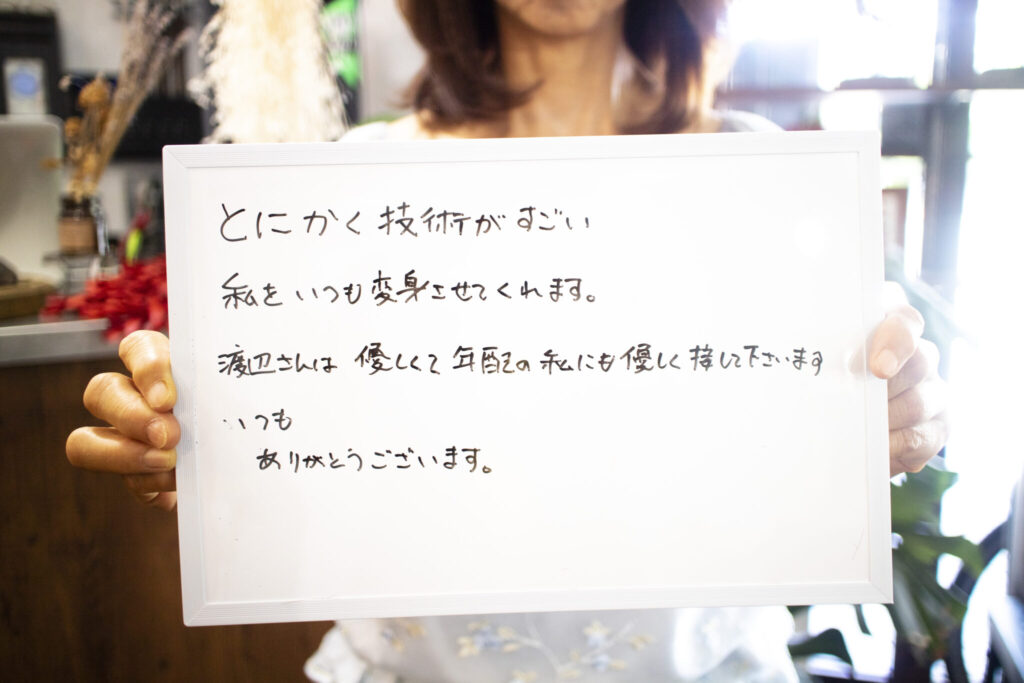 とにかく技術がすごい
私をいつも変身させてくれます。
渡辺さんは 優しくて 年配の私にも優しく接して下さいます
いつも
ありがとうございます。